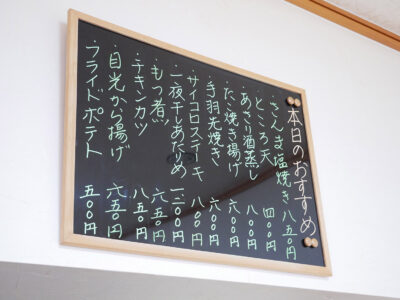 本日のおすすめ
・さんま塩焼き 八五〇円
・ところ天 四〇〇円
・あさり酒蒸し 八〇〇円
・たこ焼き揚げ 六〇〇円
・手羽先焼き 六〇〇円
・サイコロステーキ 八〇〇円
・一夜干しあたりめ 一二〇〇円
・もつ煮 六五〇円
・チキンカツ 八五〇円
・目光から揚げ 六五〇円
・フライドポテト 五〇〇円